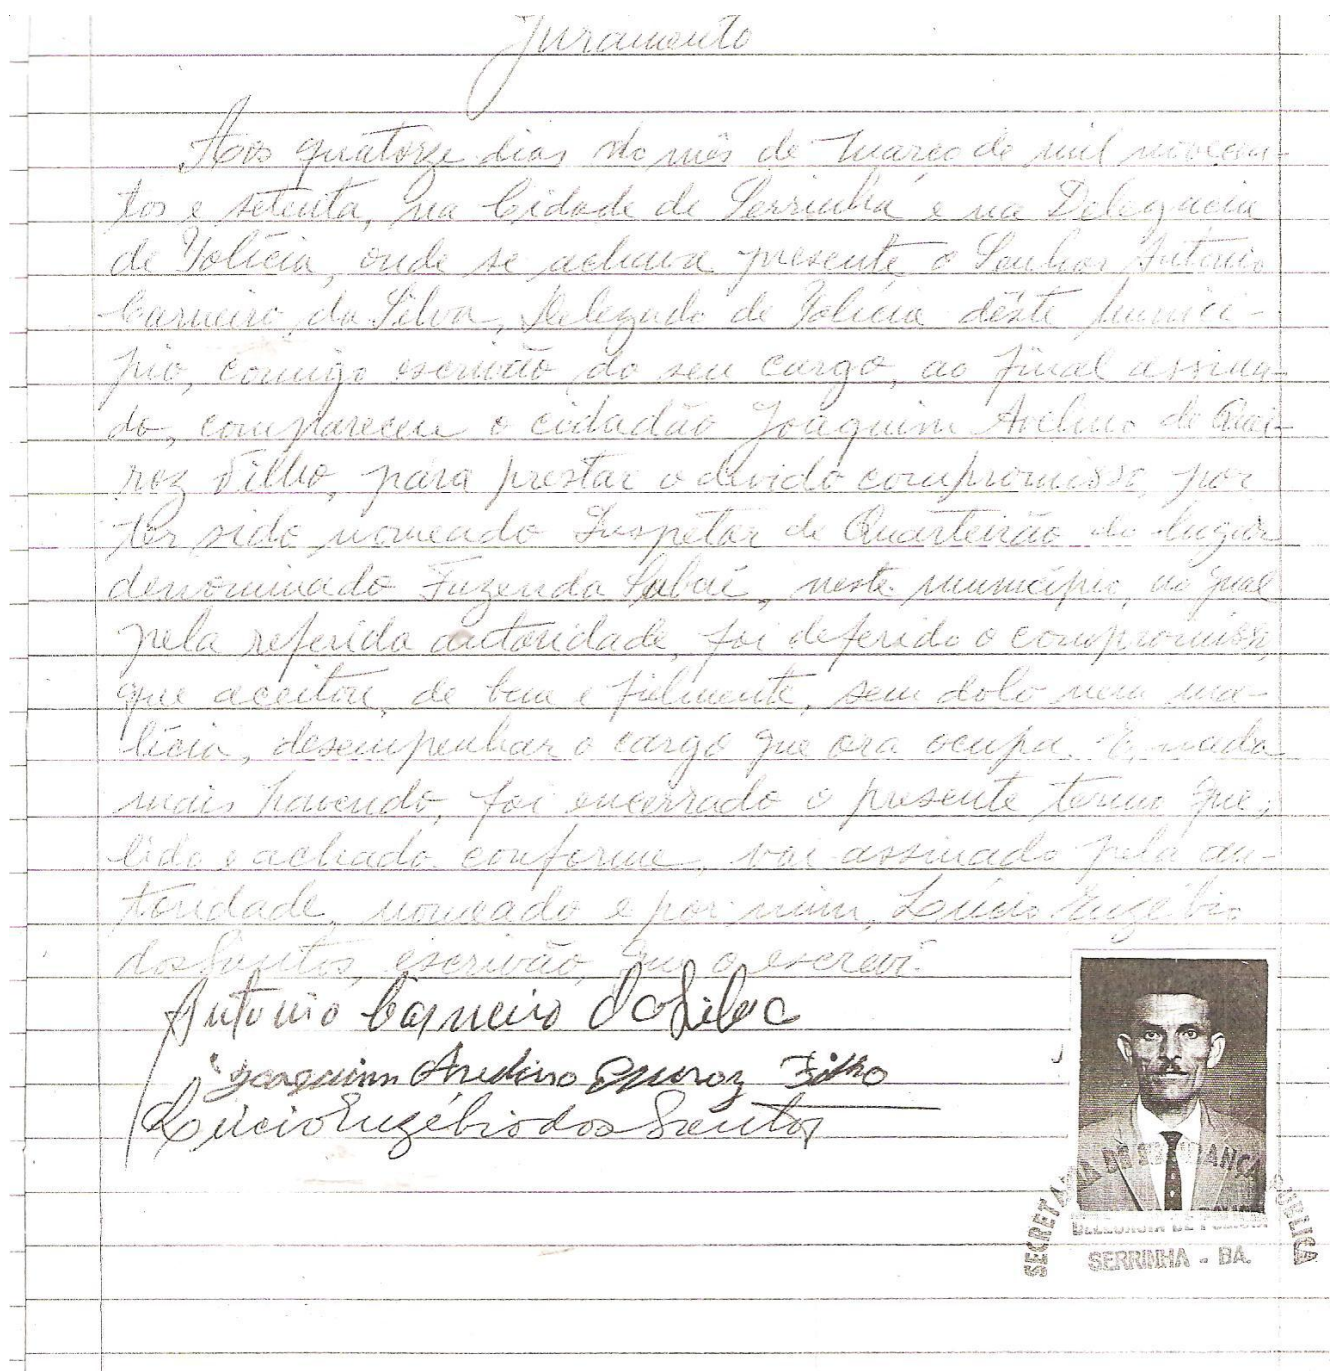 Juramento
Aos quatorze dias do mês de março de mil novecen-
tos e setenta, na Cidade de Serrinha e na Delegacia
de Polícia, onde se achava presente o Senhor Antonio
Carneiro da Silva, Delegado de Polícia dêste municí-
pio, comigo escrivão do seu cargo, ao final assina-
do, compareceu o cidadão Joaquim Avelino de Quei-
roz Filho, para prestar o devido compromisso, por
ter sido nomeado Inspetor de Quarteirão do lugar
denominado Fazenda neste município, ao qual
pela referida autoridade, foi deferido o compromisso,
que aceitou, de bem e fielmente, sem dolo nem ma-
lícia, desempenhar o cargo que ora ocupa. E, nada
mais havendo, foi encerrado o presente termo que,
lido e achado conforme, vai assinado pela au-
toridade, nomeado e por mim, Lúcio Eugébio
dos Santos, escrivão, que o escrevi.
Antonio Carneiro da Silva
Joaquim Avelino Queroz Filho
Lúcio Eugébio dos Santos
SECRETARIA DE SEGURANÇA PÚBLICA
DELEGACIA DE POLICIA
SERRINHA - BA.